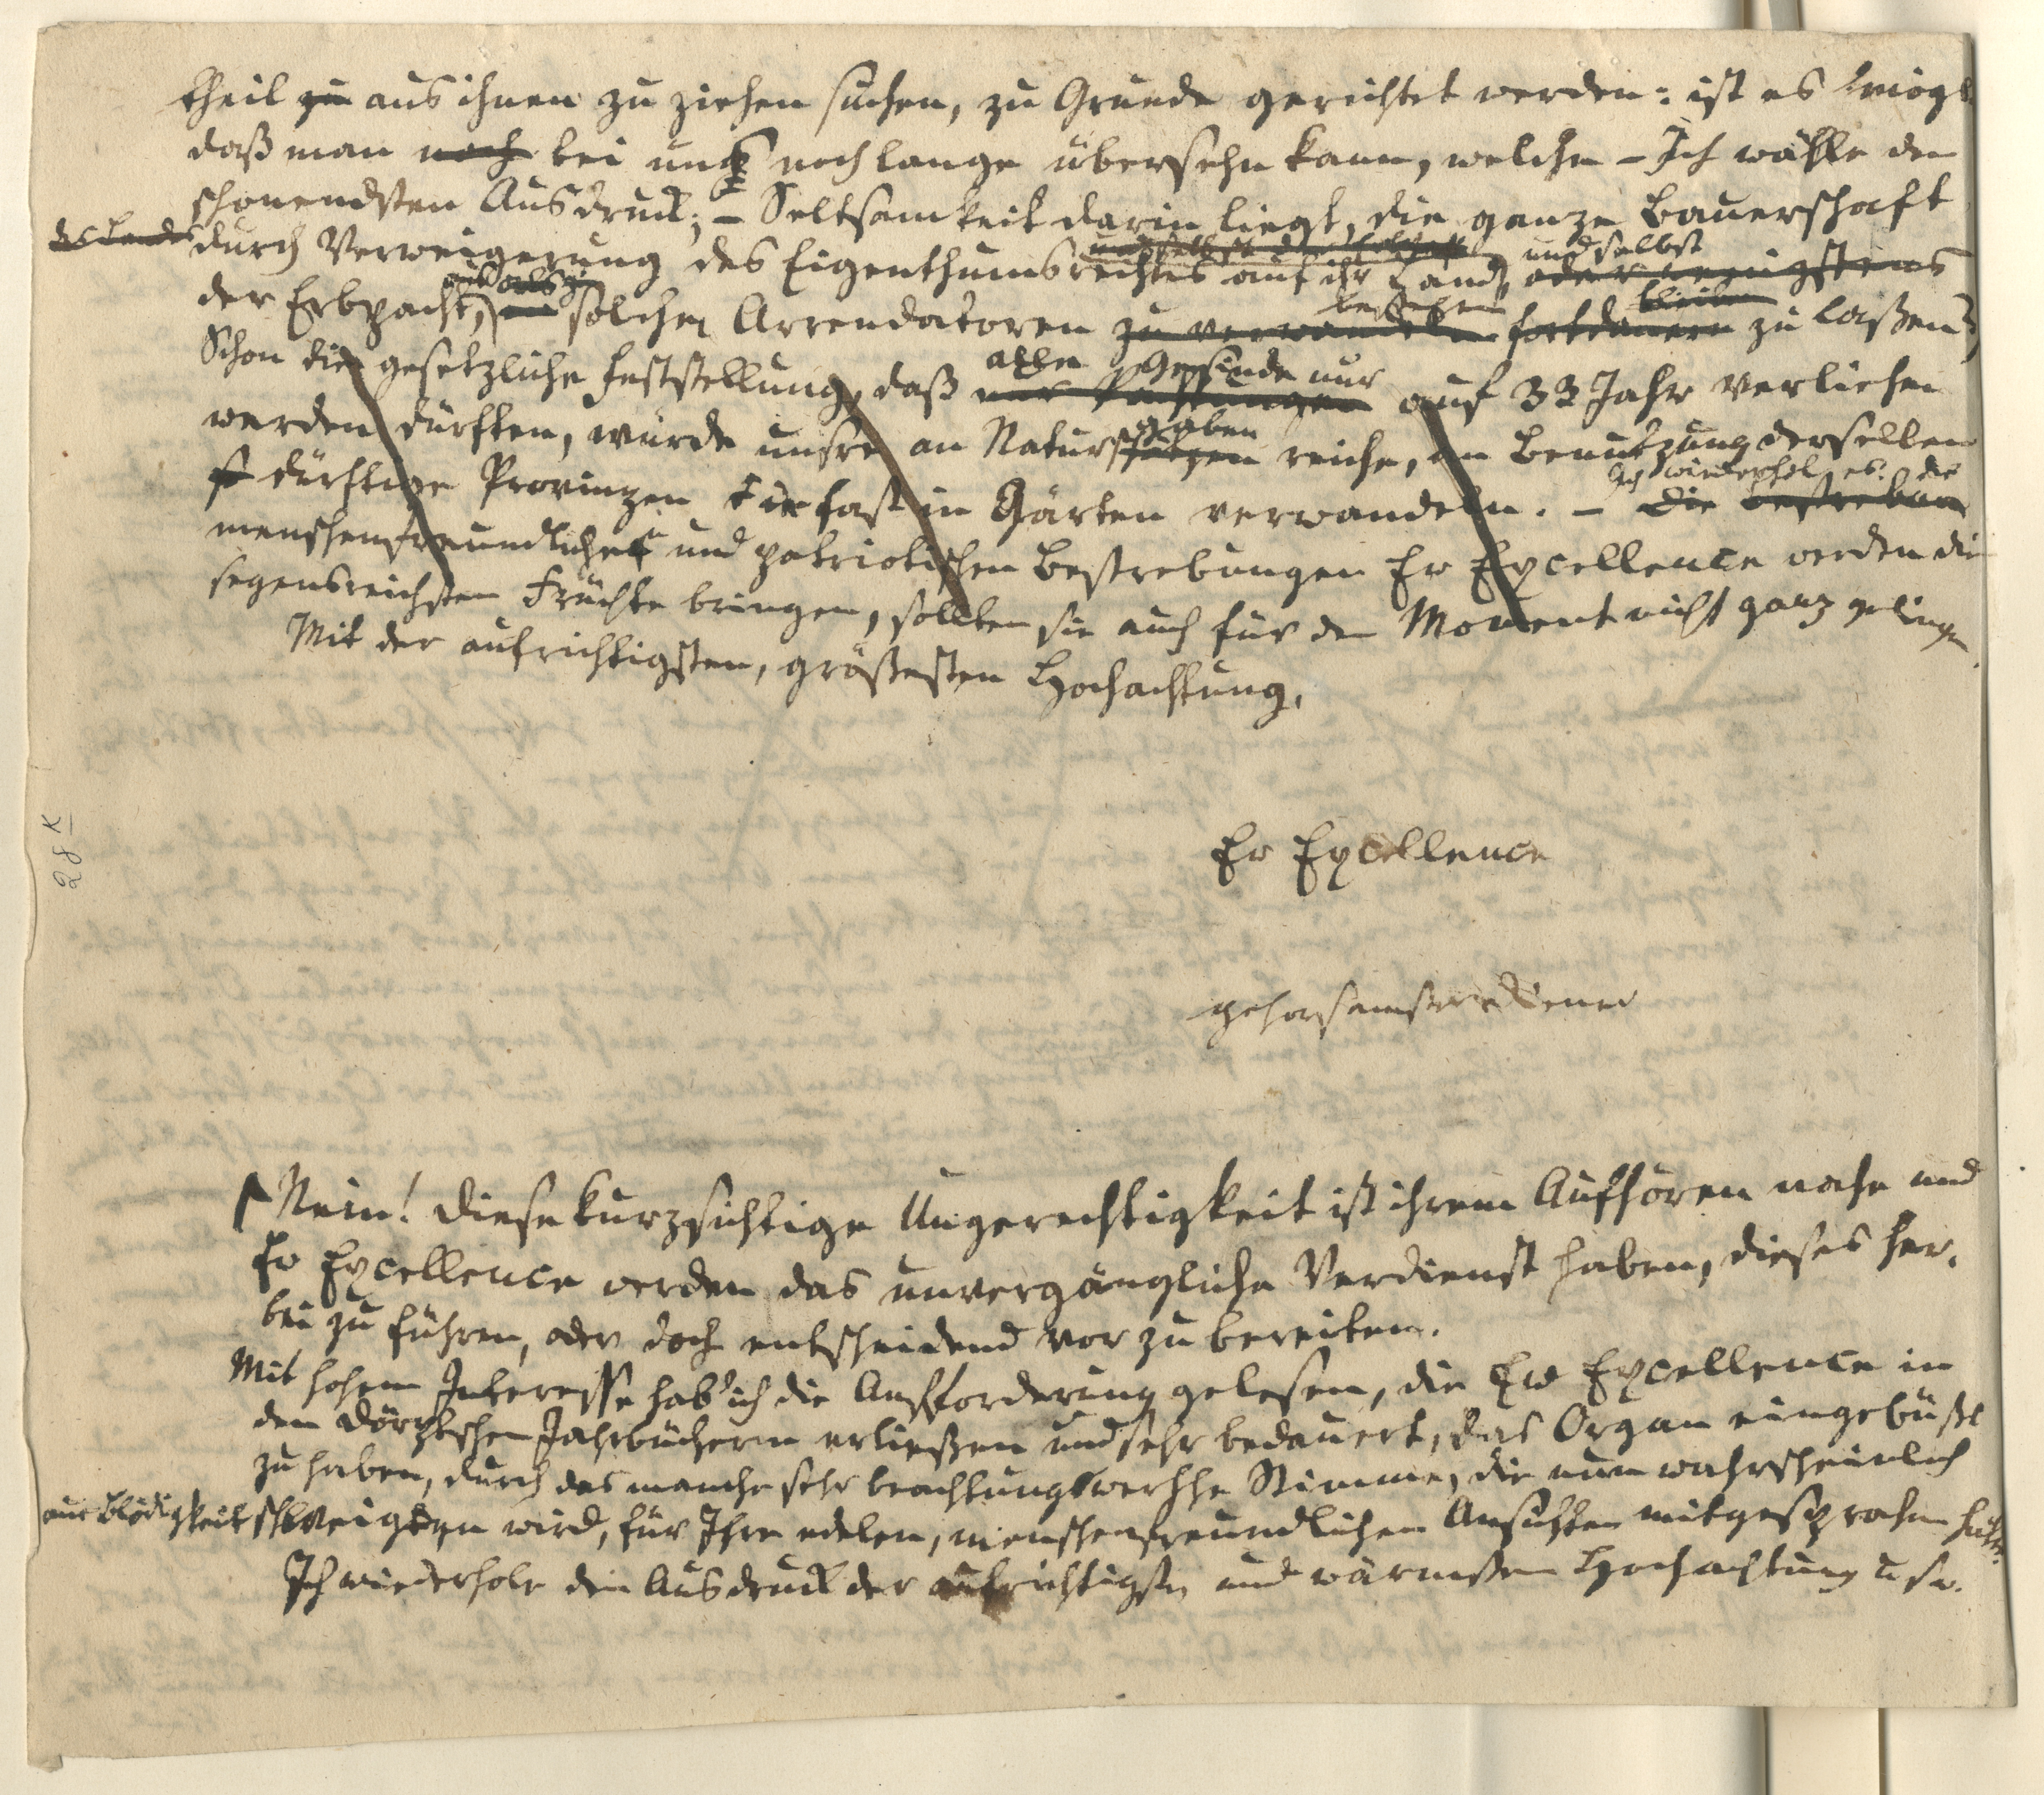 theil zu aus ihnen zu ziehen suchen, zu Grunde gerichtet werden: ist es mögl
daß man noch bei uns noch lange übersehn kann, welche – Ich wähle den
schonendsten Ausdruck; – Seltsamkeit darin liegt, die ganze Bauerschaft
des Landes durch Verweigerung des Eigenthumsrechtes auf ihr Land, und selbst oder wenigstens
der Erbpacht, aus solchen Arrendatoren bestehen zu verwandeln fortdauern bleiben zu laßen?
Schon die gesetzliche Feststellung, daß alle Gesinde nur auf 33 Jahr verliehen
werden dürften, würde unsre an Naturschätzen gaben reiche, an Benutzung derselben
dürftige Provinzen fast in Gärten verwandeln. – Ich wiederhol es: die Die Bestrebun
menschenfreundlichen und patriotischen Bestrebungen Ew Excellence werden die
segensreichsten Früchte bringen, sollten sie auch für den Moment nicht ganz gelingen.
Mit der aufrichtigsten, größesten Hochachtung,
Ew Excellence
gehorsamster Diener
28 K
Nein! diese kurzsichtige Ungerechtigkeit ist ihrem Aufhören nahe und
Ew Excellence werden das unvergängliche Verdienst haben, dieses her,
bei zu führen, oder doch entscheidend vor zu bereiten.
Mit hohem Interesse hab' ich die Aufforderung gelesen, die Ew Excellence in
den Dörptschen Jahrbüchern erließen und sehr bedauert, das Organ eingebüßt
zu haben, durch das manche sehr beachtungswerthe Stimme, die nun wahrscheinlich
aus Blödigkeit schweigen wird, für Ihre edelen, menschenfreundlichen Ansichten mitgesprochen hätte.
Ich wiederhole den Ausdruck der aufrichtigsten und wärmsten Hochachtung u sw.